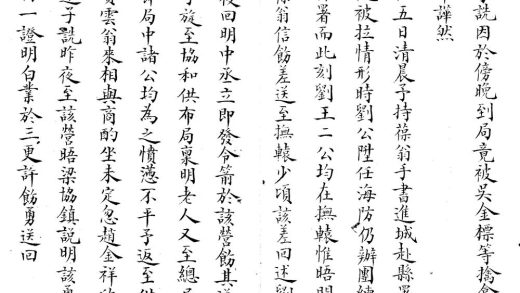 言詵因於傍晚到局竟被吳金標等擒
譁然
五日清晨予持葆翁手書進城赴縣
被拉情形時劉公陞任海防仍辦團練
署而此刻劉王二公均在撫轅惟晤明
葆翁信飭差送至撫轅少頃該差回述劉
後回明中丞立即發令箭於該營飭其
子放至協和供布局稟明老人又至總
局中諸公均為之憤懣不平予返至
黃雲翁來相與商酌坐未定忽趙金祥
造子詵昨夜至該營晤梁協鎮說明該勇
一證明白業於三更許飭勇送回